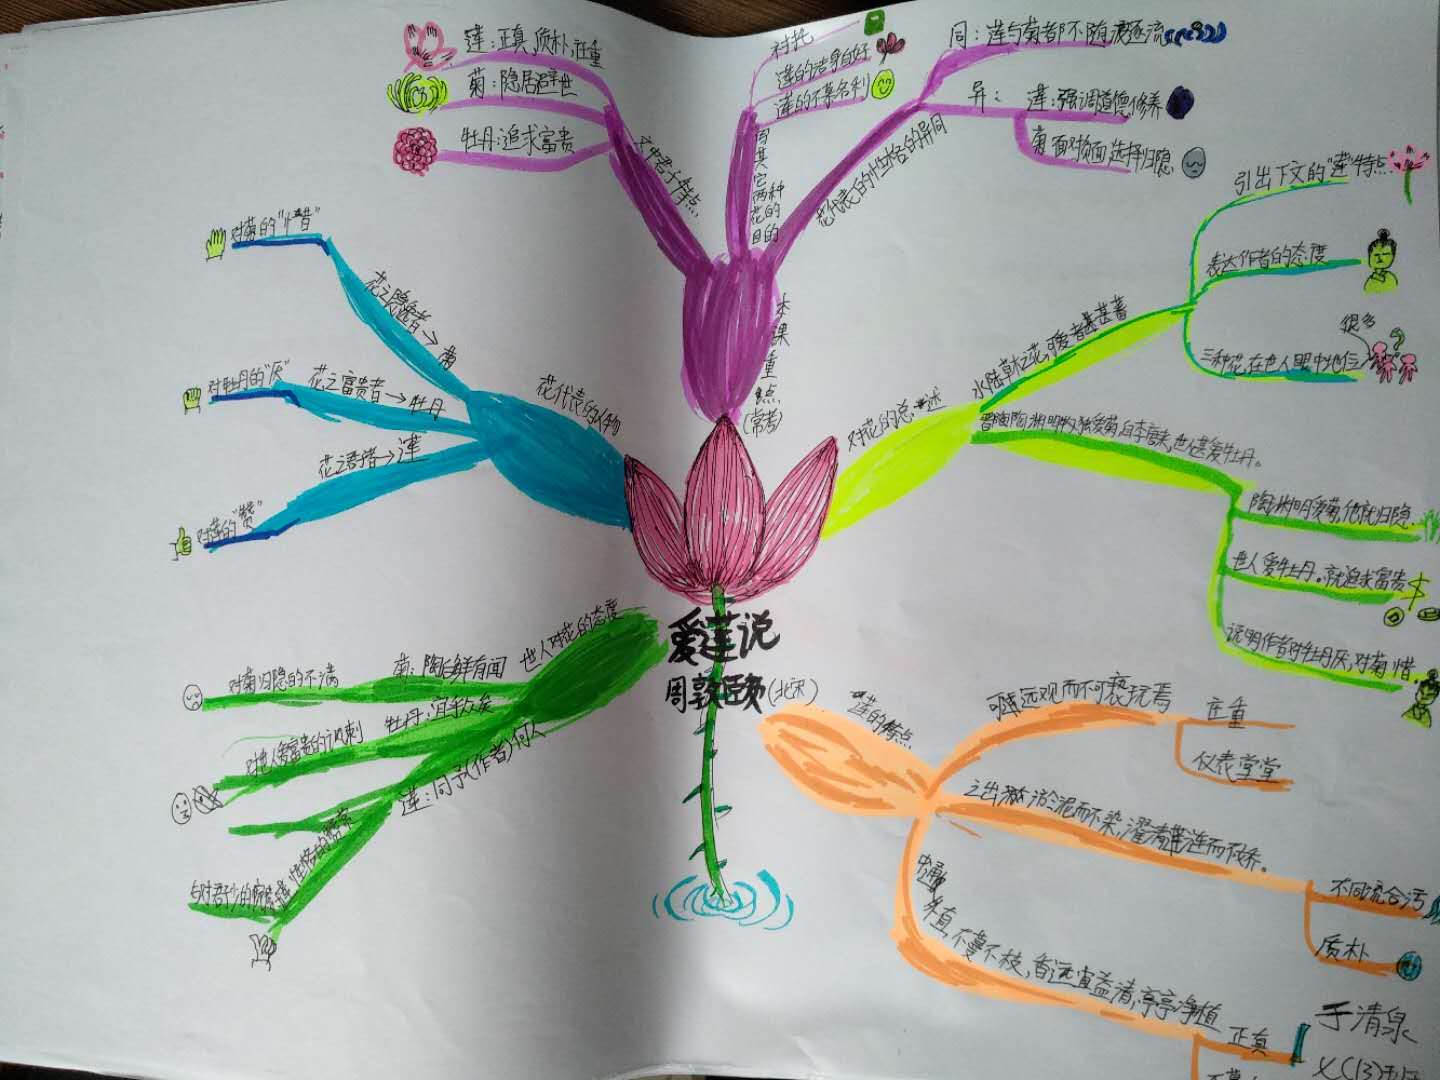 爱莲说
周敦颐
(北宋)
对花的总述
水陆草木之花,可爱者甚蕃
引出下文的"莲"特点
表达作者的态度
很多
三种花,在世人眼中地位
世人甚爱牡丹。
陶渊明爱菊,他就归隐
世人爱牡丹。就追求富贵
说明作者对牡丹厌,对菊惜
莲的特点
可远观而不可亵玩焉
庄重
仪表堂堂
之出淤泥而不染,濯清涟而不妖。
不同流合污
质朴
中通外直,不蔓不枝,香远益清,亭亭净植
正直
于清泉
世人对花的态度
菊:陶后鲜有闻
对菊归隐的不满
牡丹:宜乎众矣
对世人爱富贵的讽刺
莲:同予(作者)何人
花代表的人物
花之隐逸者→菊
对菊的"惜"
花之富贵者→牡丹
对牡丹的"厌"
花之君子者→莲
对莲的"赞"
本课重点
(常考)
文中君子特点
莲:正直,质朴,庄重
菊:隐居避世
牡丹:追求富贵
写其它两种花的目的
衬托
莲的洁身自好
莲的不慕名利
花代表的性格的异同
同:莲与菊都不随波逐流
异:
莲:强调道德修养
选择归隐